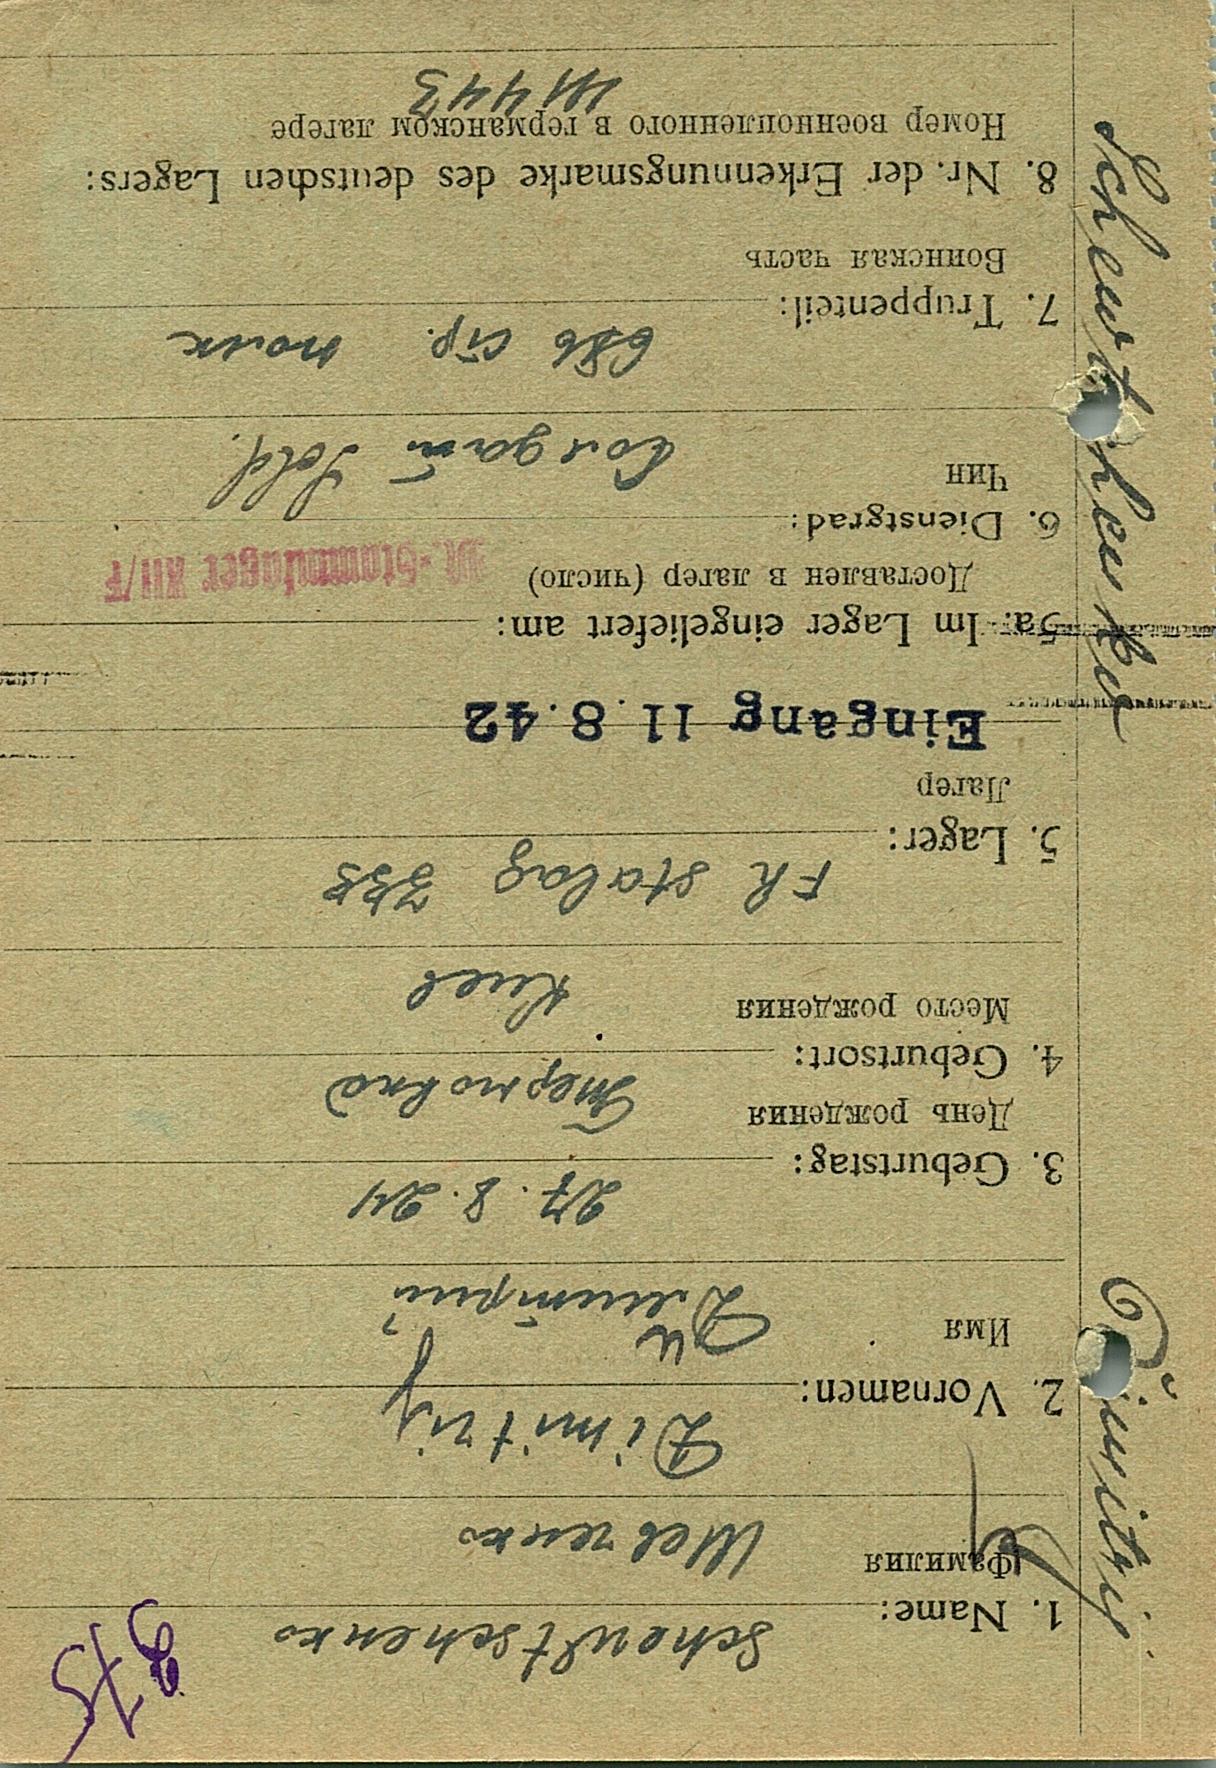 275
Scheutschenko
1. Name:
Фамилия
Шевченко
Dimitrij
2. Vornamen:
Имя
Дмитрий
27. 8. 24
3. Geburtstag:
День рождения
4. Geburtsort:
Место рождения
Киев
Fr Stalag
5. Lager:
Лагер
Eingang 11.8.42
5a. Im Lager eingeliefert am:
Доставлен в лагер (число)
M.-Stammlager XII/F
6. Dienstgrad:
Чин
Солдат Sold.
686 стр. полк
7. Truppenteil:
Воинская часть
8. Nr. der Erkennungsmarke des deutschen Lagers:
Номер военнопленного в германском лагере
Dimitrij Scheutschenko